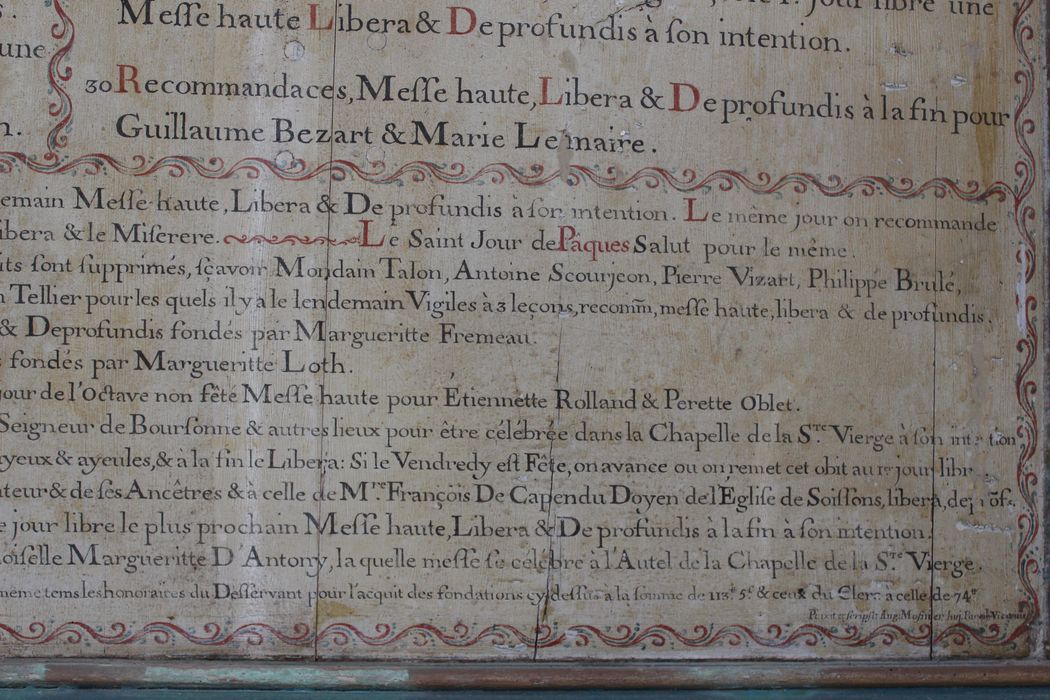 Meſſe haute Libera & De profundis à ſon intention.
jour libre une
une
30 Recommandaces, Meſſe haute, Libera & De profundis à la fin pour
Guillaume Bezart & Marie Lemaire.
emain Meſſe haute, Libera & De profundis à ſon intention. Le même jour on recommande
ibera & le Miſerere. Le Saint Jour de Pâques Salut pour le même.
its ſont ſupprimés, ſçavoir Mondain Talon, Antoine Scourjeon, Pierre Vizart, Philippe Brulé,
Tellier pour les quels il y a le lendemain Vigiles à 3 leçons, recomm̃, meſſe haute, libera & de profundis.
& De profundis fondés par Margueritte Fremeau.
fondés par Margueritte Loth.
jour de l'Octave non fêté Meſſe haute pour Étiennette Rolland & Perette Oblet.
Seigneur de Bourſonne & autres lieux pour être célébrée dans la Chapelle de la S.te Vierge à ſon intention
yeux & ayeules, & à la fin le Libera: Si le Vendredy eſt Fête, on avance ou on remet cet obit au 1er jour libr
ateur & de ſes Ancêtres & à celle de M.re François De Capendu Doyen de l'Égliſe de Soiſſons, libera,
e jour libre le plus prochain Meſſe haute, Libera & De profundis à la fin à ſon intention.
oiſelle Margueritte D'Antony, la quelle meſſe ſe célèbre à l'Autel de la Chapelle de la S.te Vierge.
même tems les honoraires du Deſſervant pour l'acquit des fondations cy deſſus à la ſomme de 113# 5ſ & ceux du Clerc à celle de 74#